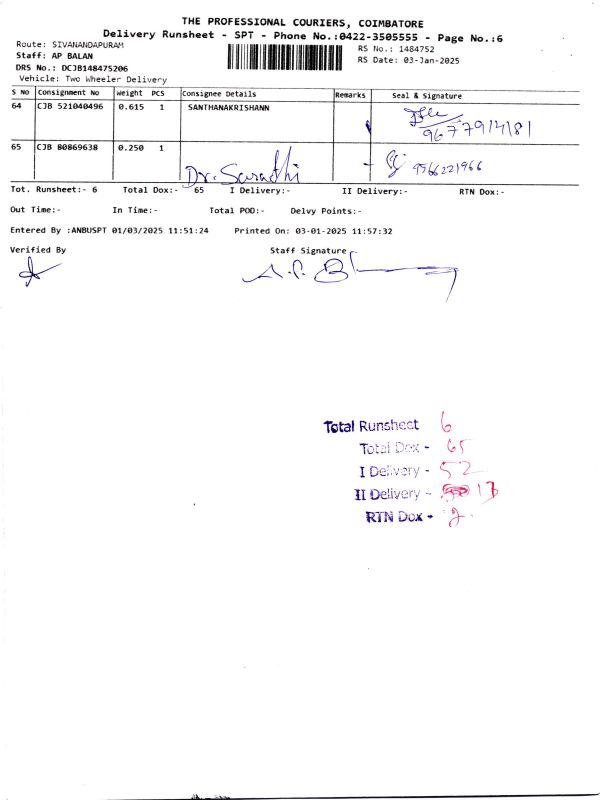 THE PROFESSIONAL COURIERS, COIMBATORE
Delivery Runsheet - SPT - Phone No.:0422-3505555 - Page No.:6
Route: SIVANANDAPURAM
RS No.: 1484752
Staff: AP BALAN
RS Date: 03-Jan-2025
DRS No.: DCJB148475206
Vehicle: Two Wheeler Delivery
S No Consignment No Weight PCS Consignee Details Remarks Seal & Signature
64 CJB 521040496 0.615 1 SANTHANAKRISHANN
9677914181
65 CJB 80869638 0.250 1
Dr. Sarathi 9566221966
Tot. Runsheet:- 6 Total Dox:- 65 I Delivery:- II Delivery:- RTN Dox:-
Out Time:- In Time:- Total POD:- Delvy Points:-
Entered By :ANBUSPT 01/03/2025 11:51:24 Printed On: 03-01-2025 11:57:32
Verified By Staff Signature
Total Runsheet 6
Total Dox - 65
I Delivery - 52
II Delivery - 13
RTN Dox - 2